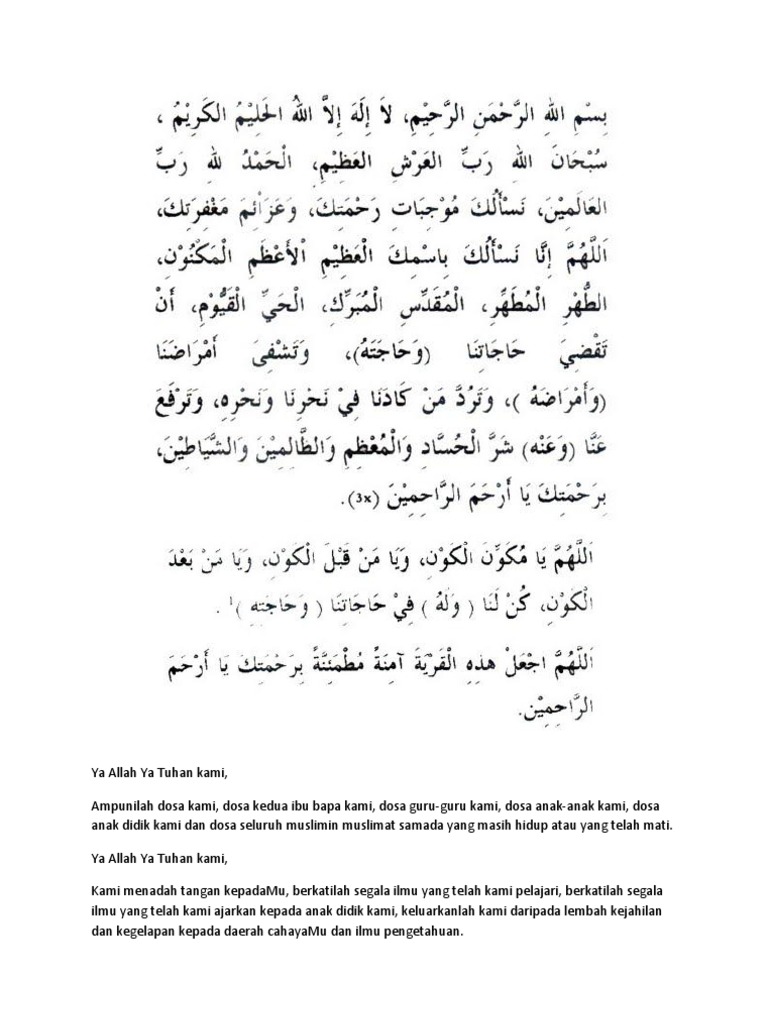 بِسْمِ اللهِ الرَّحْمَنِ الرَّحِيْمِ، لاَ إِلَهَ إِلاَّ اللهُ الحَلِيْمُ الكَرِيْمُ ،
سُبْحَانَ اللهِ رَبِّ العَرْشِ العَظِيْمِ، الْحَمْدُ لِلهِ رَبِّ
العَالَمِيْنَ، نَسْأَلُكَ مُوْجِبَاتِ رَحْمَتِكَ، وَعَزَائِمَ مَغْفِرَتِكَ،
اَللَّهُمَّ إِنَّا نَسْأَلُكَ بِاسْمِكَ الْعَظِيْمِ اْلأَعْظَمِ الْمَكْنُوْنِ،
الطُّهْرِ الْمُطَهَّرِ، الْمُقَدَّسِ الْمُبَرَّكِ، الْحَيِّ الْقَيُّوْمِ، أَنْ
تَقْضِيَ حَاجَاتِنَا (وَحَاجَتَهُ)، وَتَشْفِىَ أَمْرَاضَنَا
(وَأَمْرَاضَهُ )، وَتَرُدَّ مَنْ كَادَنَا فِيْ نَحْرِنَا وَنَحْرِهِ، وَتَرْفَعَ
عَنَّا (وَعَنْه) شَرَّ الْحُسَّادِ وَالْمُعْظِمِ وَالظَّالِمِيْنَ وَالشَّيَاطِيْنَ،
بِرَحْمَتِكَ يَا أَرْحَمَ الرَّاحِمِيْنَ (3x).
اَللَّهُمَّ يَا مُكَوِّنَ الْكَوْنِ، وَيَا مَنْ قَبْلَ الْكَوْنِ، وَيَا مَنْ بَعْدَ
الْكَوْنِ، كُنْ لَنَا ( وَلَهُ ) فِيْ حَاجَاتِنَا ( وَحَاجَتِهِ )¹ .
اَللَّهُمَّ اجْعَلْ هَذِهِ الْقَرْيَةَ آمِنَةً مُطْمَئِنَّةً بِرَحْمَتِكَ يَا أَرْحَمَ
الرَّاحِمِيْن.
Ya Allah Ya Tuhan kami,
Ampunilah dosa kami, dosa kedua ibu bapa kami, dosa guru-guru kami, dosa anak-anak kami, dosa
anak didik kami dan dosa seluruh muslimin muslimat samada yang masih hidup atau yang telah mati.
Ya Allah Ya Tuhan kami,
Kami menadah tangan kepadaMu, berkatilah segala ilmu yang telah kami pelajari, berkatilah segala
ilmu yang telah kami ajarkan kepada anak didik kami, keluarkanlah kami daripada lembah kejahilan
dan kegelapan kepada daerah cahayaMu dan ilmu pengetahuan.